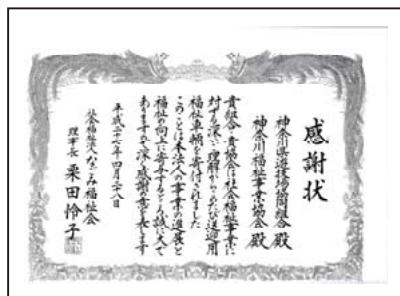 感謝状
神奈川県遊技場協同組合 殿
神奈川福祉事業協会 殿
貴組合・貴協会は社会福祉事業に
対する深いご理解からこのたび送迎用
福祉車輌を寄付されました
このことは本法人の事業の進展と
福祉の向上に寄与するところ誠に大で
ありますので深く感謝の意を表します
平成二十七年四月二十八日
社会福祉法人なごみ福祉会
理事長 栗田怜子